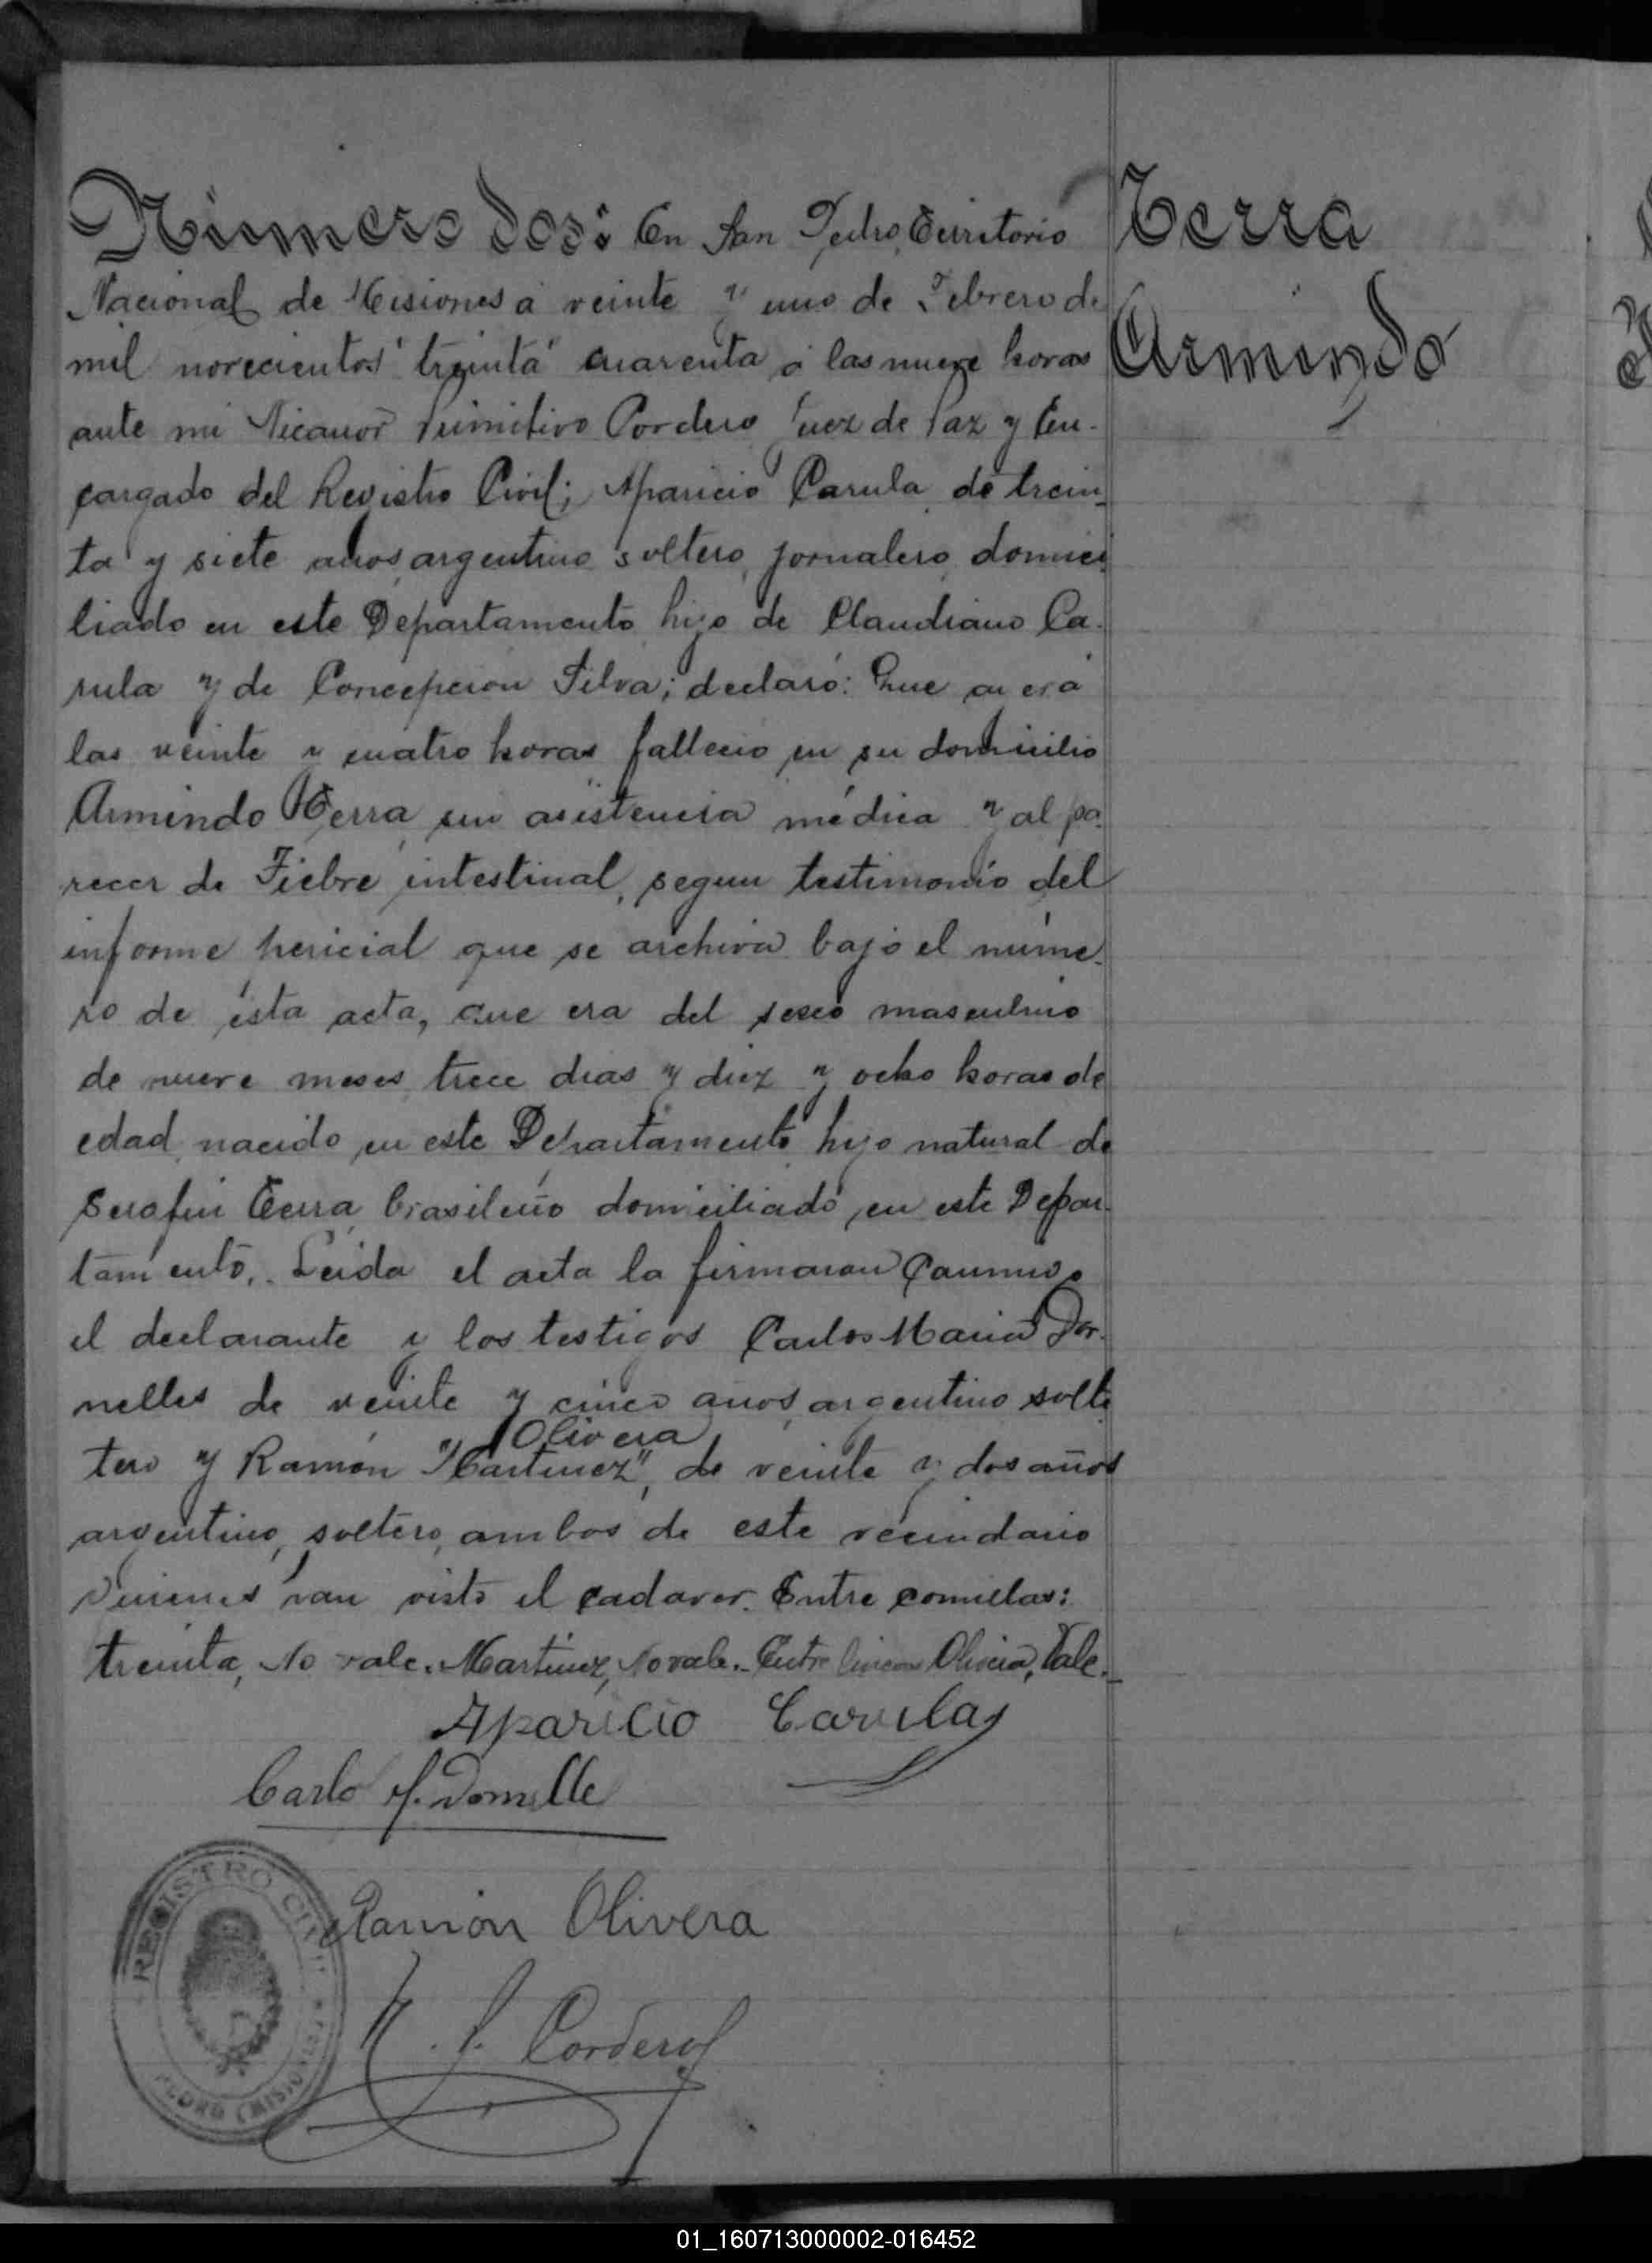 Número dos: En San Pedro, Territorio
Nacional de Misiones a veinte y uno de Febrero de
mil novecientos "treinta" cuarenta a las nueve horas
ante mi Nicanor Primitivo Cordero Juez de Paz y En-
cargado del Registro Civil; Aparicio Carula, de trein-
ta y siete años, argentino, soltero, jornalero, domici
liado en este Departamento, hijo de Claudiano Ca-
rula y de Concepcion Silva; declaró: Que ayer a
las veinte y cuatro horas fallecio en su domicilio
Armindo Terra, sin asistencia médica y al pa-
recer de Fiebre intestinal, segun testimonio del
informe pericial que se archiva bajo el núme-
ro de esta acta, que era del sexo masculino
de nueve meses, trece dias y diez y ocho horas de
edad, nacido en este Departamento, hijo natural de
Serafin Terra, brasileño domiciliado en este Depar-
tamento. Leida el acta la firmaron conmigo
el declarante y los testigos Carlos Maria Dor-
nelles de veinte y cinco años, argentino solte
Olivera
tero y Ramón "Martinez", de veinte y dos años
argentino, soltero, ambos de este vecindario
Quienes han visto el cadaver. Entre comillas:
treinta, No vale. Martinez, No vale. Entre lineas Olivera, Vale.
Aparicio Carulas
Carlo M. Dornelle
Ramón Olivera
N. P. Cordero
Terra
Armindo
REGISTRO CIVIL
PEDRO (MISIONES)
01_160713000002-016452